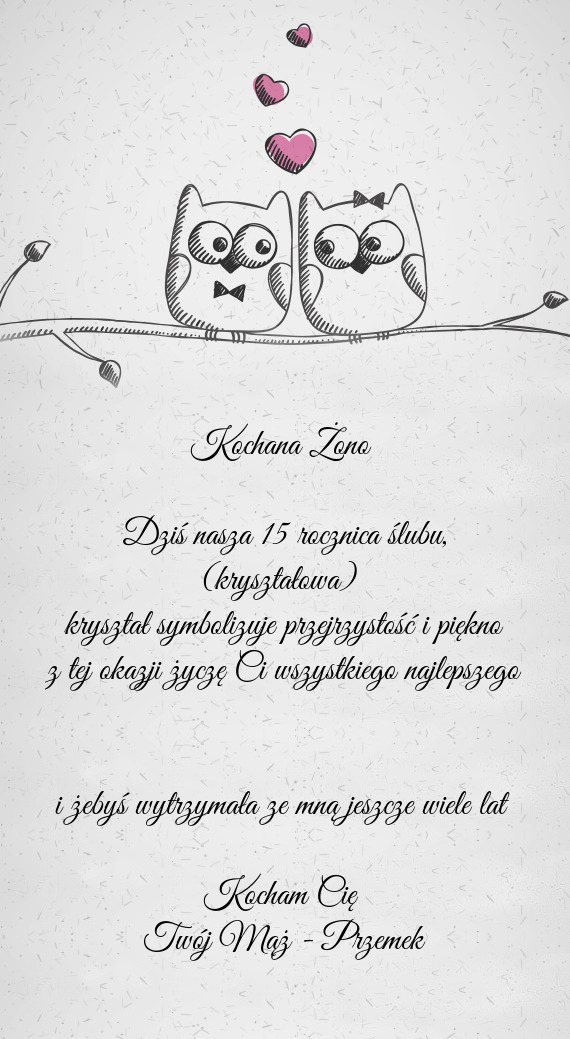 Kochana Żono
Dziś nasza 15 rocznica ślubu,
(kryształowa)
kryształ symbolizuje przejrzystość i piękno
z tej okazji życzę Ci wszystkiego najlepszego
i żebyś wytrzymała ze mną jeszcze wiele lat
Kocham Cię
Twój Mąż - Przemek